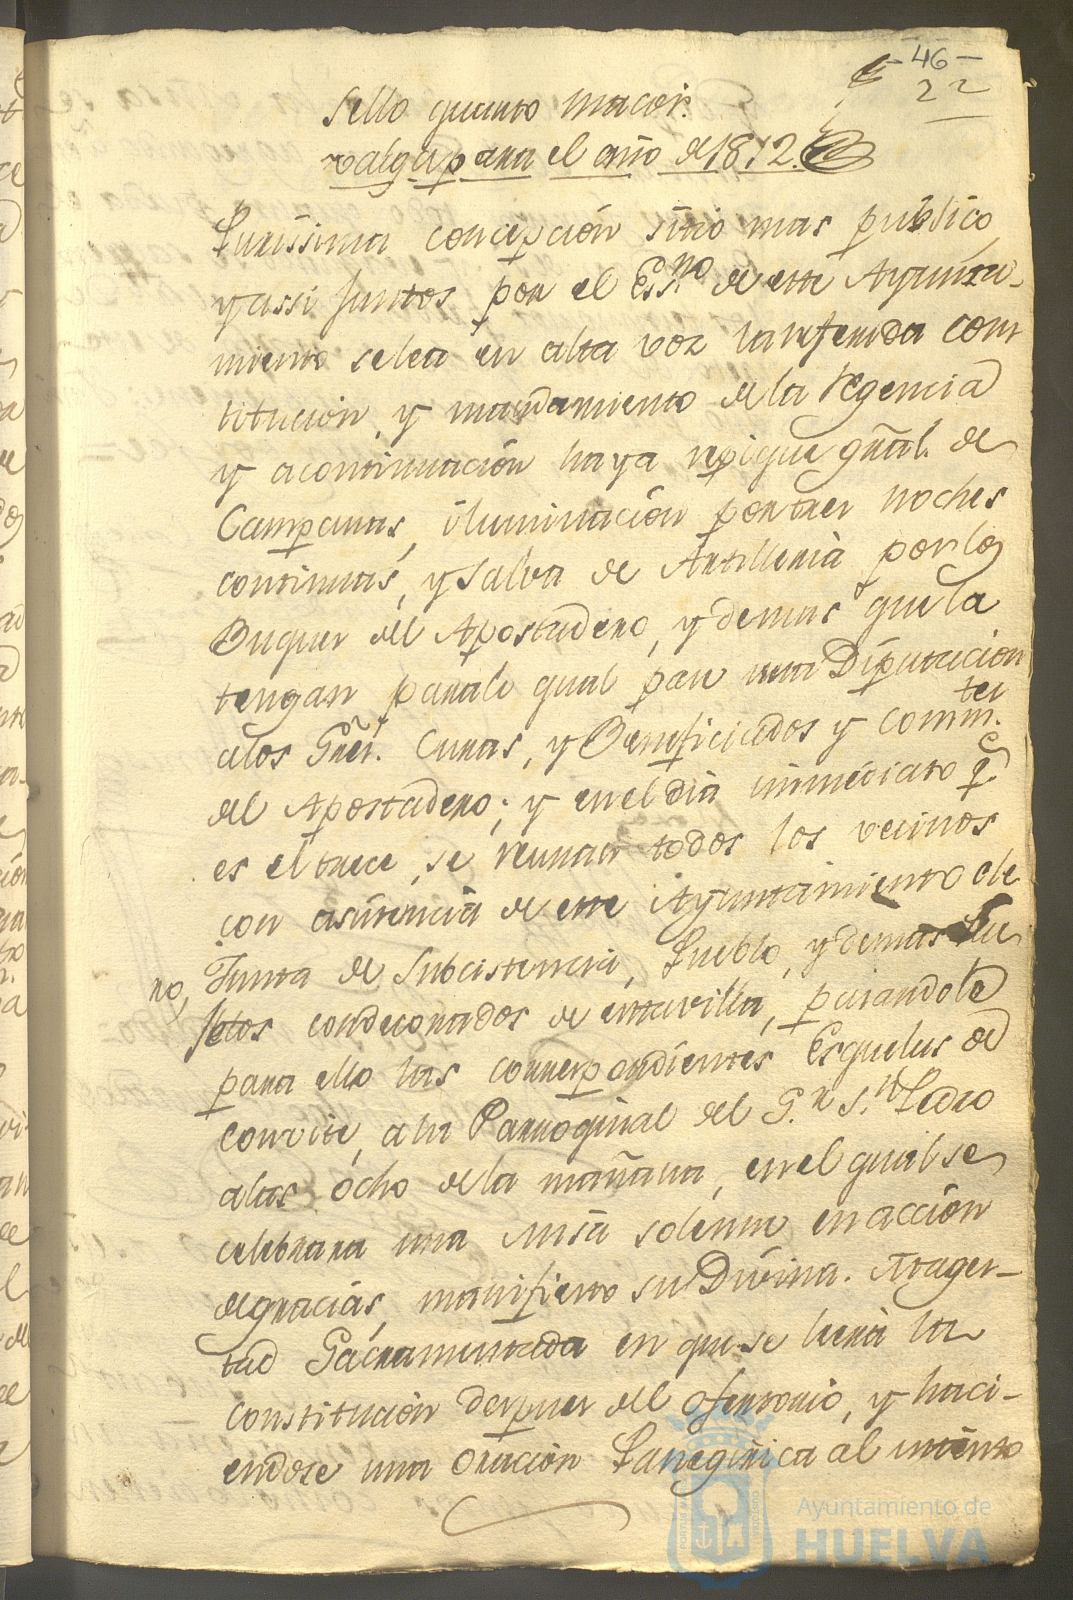 46
22
Sello quarto maior.
valga para el año de 1812.
Purissima concepcion sitio mas publico
y assi juntos por el Ess.no de este Ayunta-
miento selea en alta voz la referida Cons
titucion, y mandamiento de la Regencia
y acontinuacion haya repique gñal. de
Campanas, iluminacion por tres noches
continuas, y salva de Artilleria por los
Buques del Apostadero, y demas que la
tengan para lo qual pase una Diputacion
alos Sres. Curas, y Beneficiados y Comm.te
del Apostadero; y en el dia inmediato q.e
es el trece, se reunan todos los vecinos
con asistencia de este Ayuntamiento ple
no, Junta de Subcistencia, Pueblo, y demas Su
jetos condecorados de esta villa, pasandole
para ello las correspondientes Esquelas de
Convite, a la Parroquial del S.r S.n Pedro
alas ocho de la mañana, en el qual se
celebrara una Misa solemne en accion
de gracias, manifiesto su Divina. Mages-
tad Sacramentada en que se leerá la
Constitucion despues del ofertorio, y haci-
endose una oracion Panegirica al intento
Ayuntamiento de
HUELVA